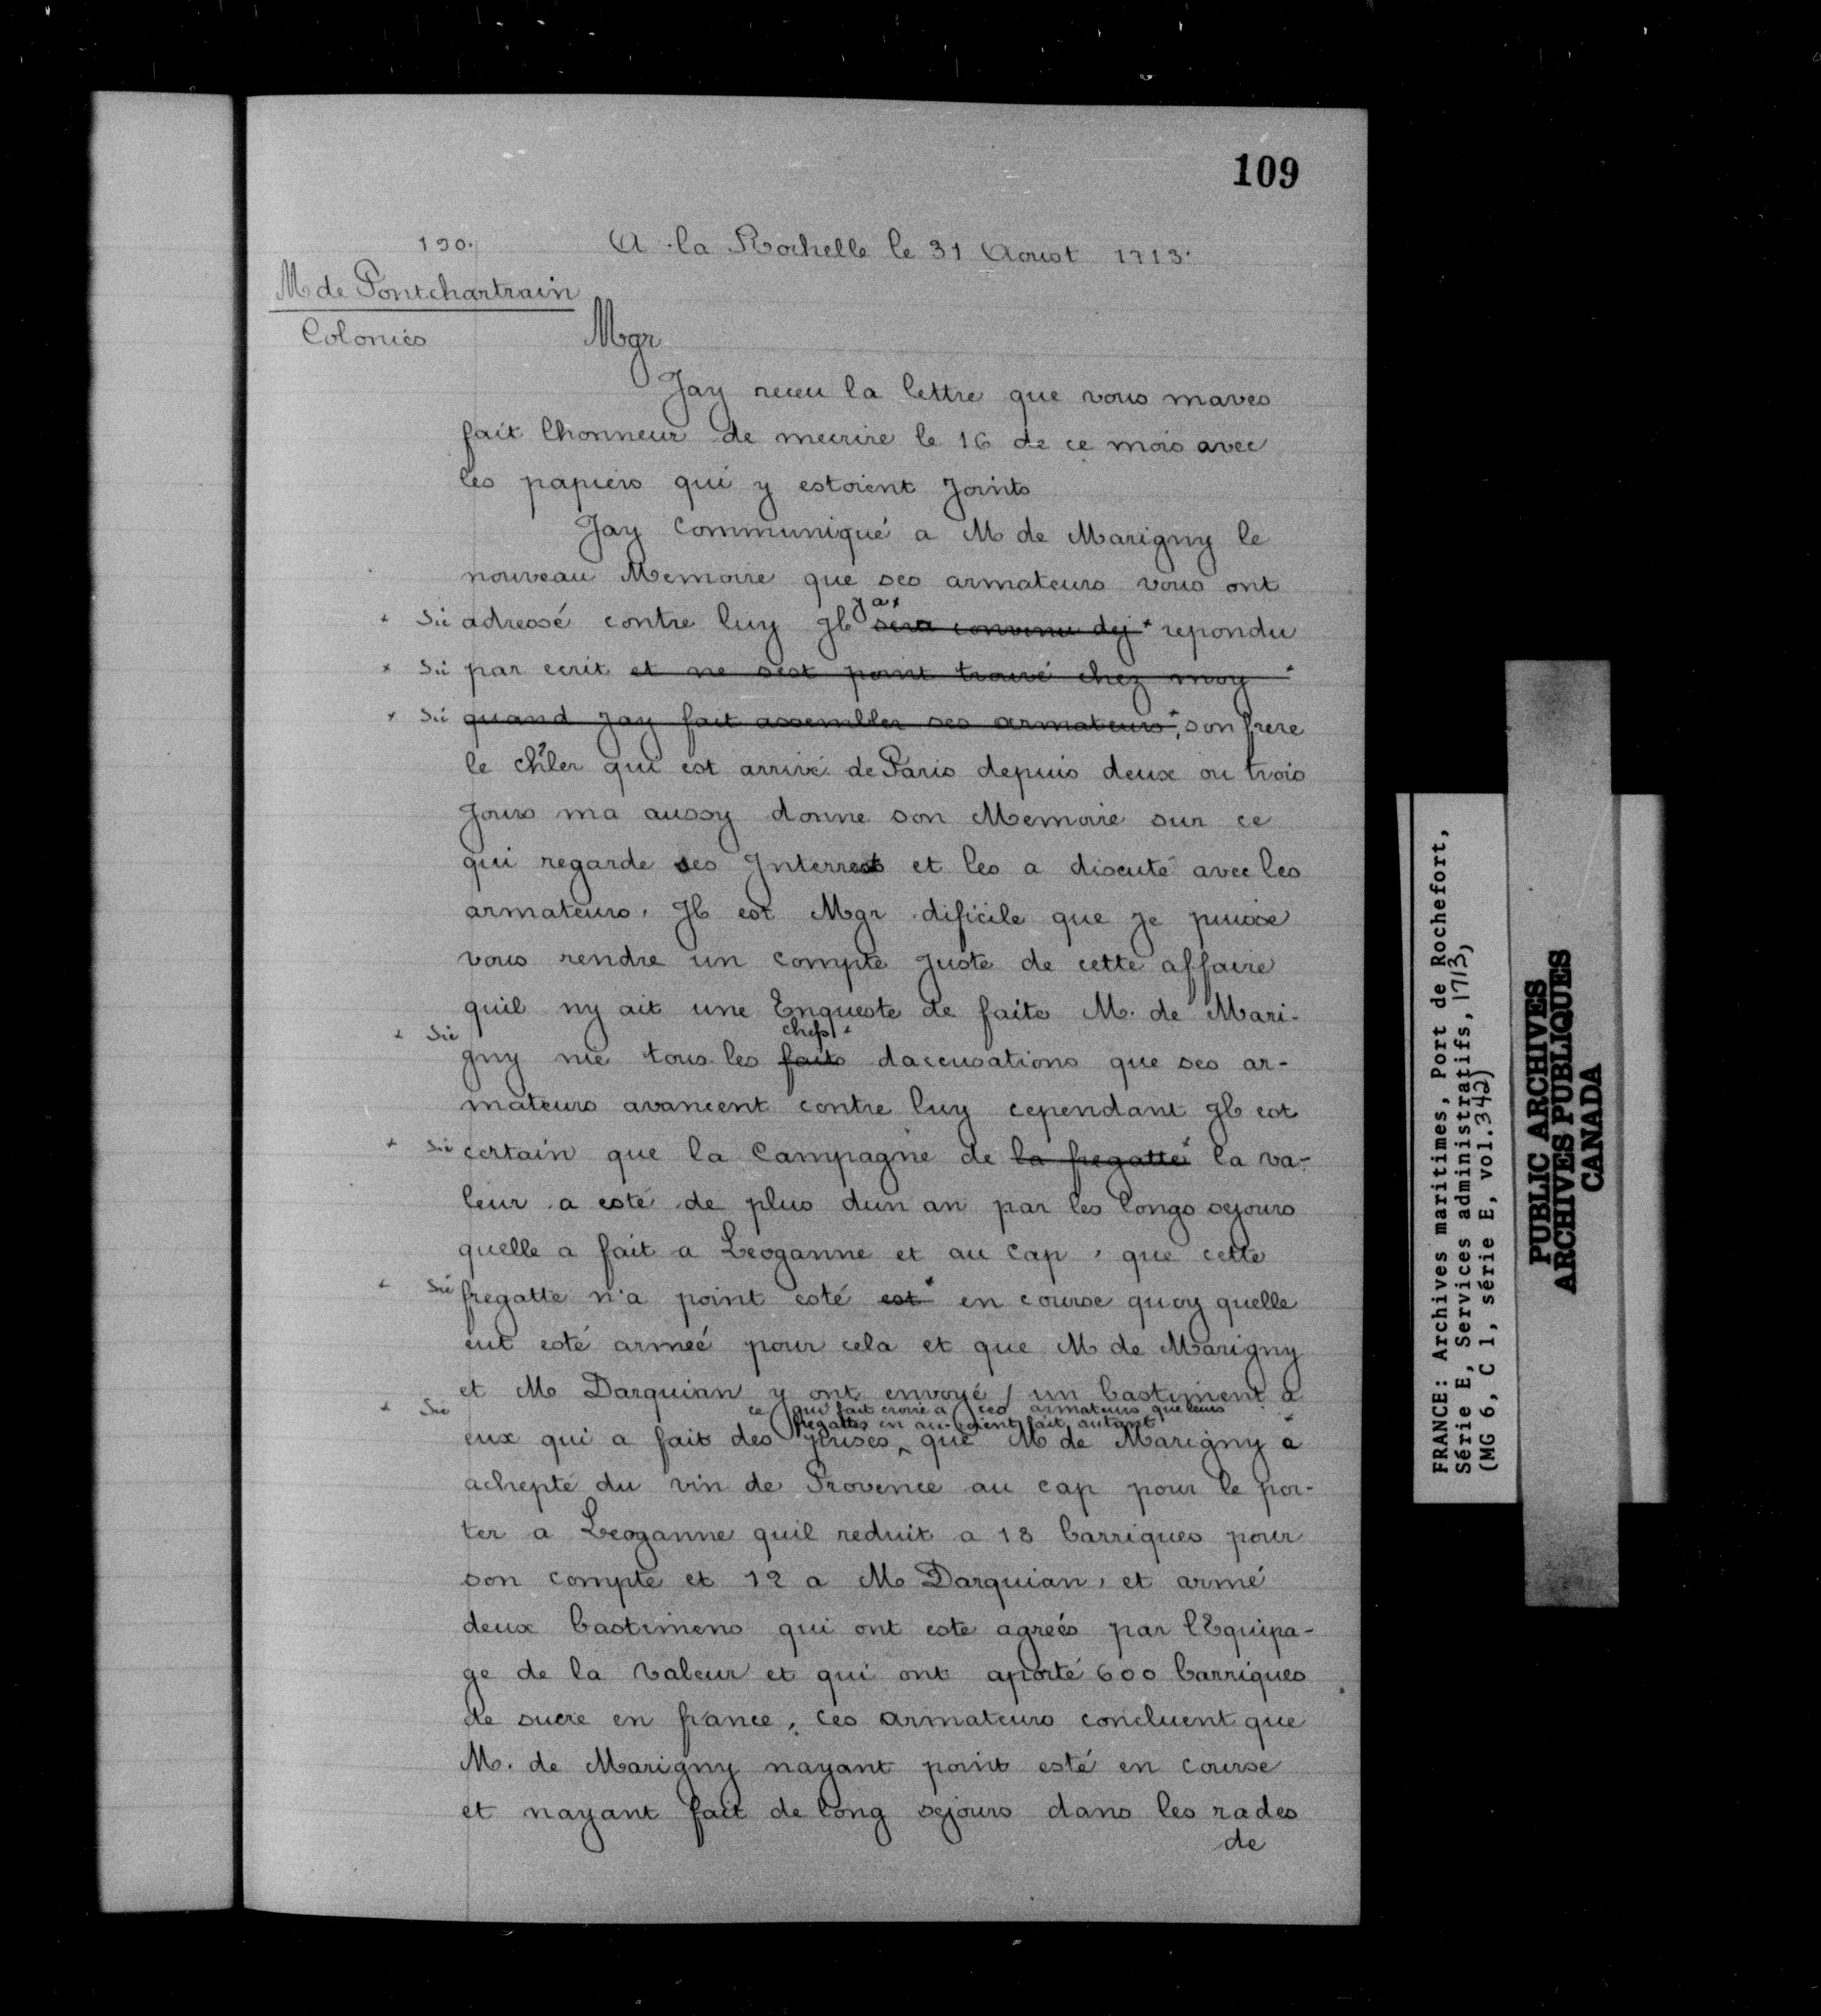 109
190.
A la Rochelle le 31 Aoust 1713.
M de Pontchartrain
Colonies
Mgr
Jay receu la lettre que vous maves
fait lhonneur de mecrire le 16 de ce mois avec
les papiers qui y estoient joints
Jay communiqué a M de Marigny le
nouveau Memoire que ses armateurs vous ont
+ Sic adressé contre luy Jl y a+ sera convenu dej + repondu
+ Sic par ecrit et ne sest point trouvé chez moy +
+ Sic quand Jay fait assembler ses armateurs +, son frere
le chler qui est arrivé de Paris depuis deux ou trois
Jours ma aussy donne son Memoire sur ce
qui regarde ses Jnterrests et les a discuté avec les
armateurs. Jl est Mgr dificile que je puisse
vous rendre un compte juste de cette affaire
quil ny ait une Enqueste de faite M. de Mari-
+ Sic chefs +
gny nie tous les faits daccusations que ses ar-
mateurs avancent contre luy cependant Jl est
+ Sic certain que la Campagne de la fregatte + la va-
leur a esté de plus dun an par les longs sejours
quelle a fait a Leoganne et au Cap, que cette
+ Sic fregatte n'a point esté est + en course quoy quelle
eut esté armeé pour cela et que M de Marigny
et M Darquian y ont envoyé / un bastiment a
+ Sic ce qui fait croire a ses armateurs que leurs
fregattes en auroient fait autant +
eux qui a fait des prises ^ que M de Marigny a
achepté du vin de Provence au cap pour le por-
ter a Leoganne quil reduit a 18 barriques pour
son compte et 12 a M Darquian, et armé
deux bastimens qui ont este agreés par lEquipa-
ge de la Valeur et qui ont aporté 600 barriques
de sucre en france, ces armateurs concluent que
M. de Marigny nayant point esté en course
et nayant fait de long sejours dans les rades
de
FRANCE: Archives maritimes, Port de Rochefort,
Série E, Services administratifs, 1713,
(MG 6, C 1, série E, vol.342)
PUBLIC ARCHIVES
ARCHIVES PUBLIQUES
CANADA